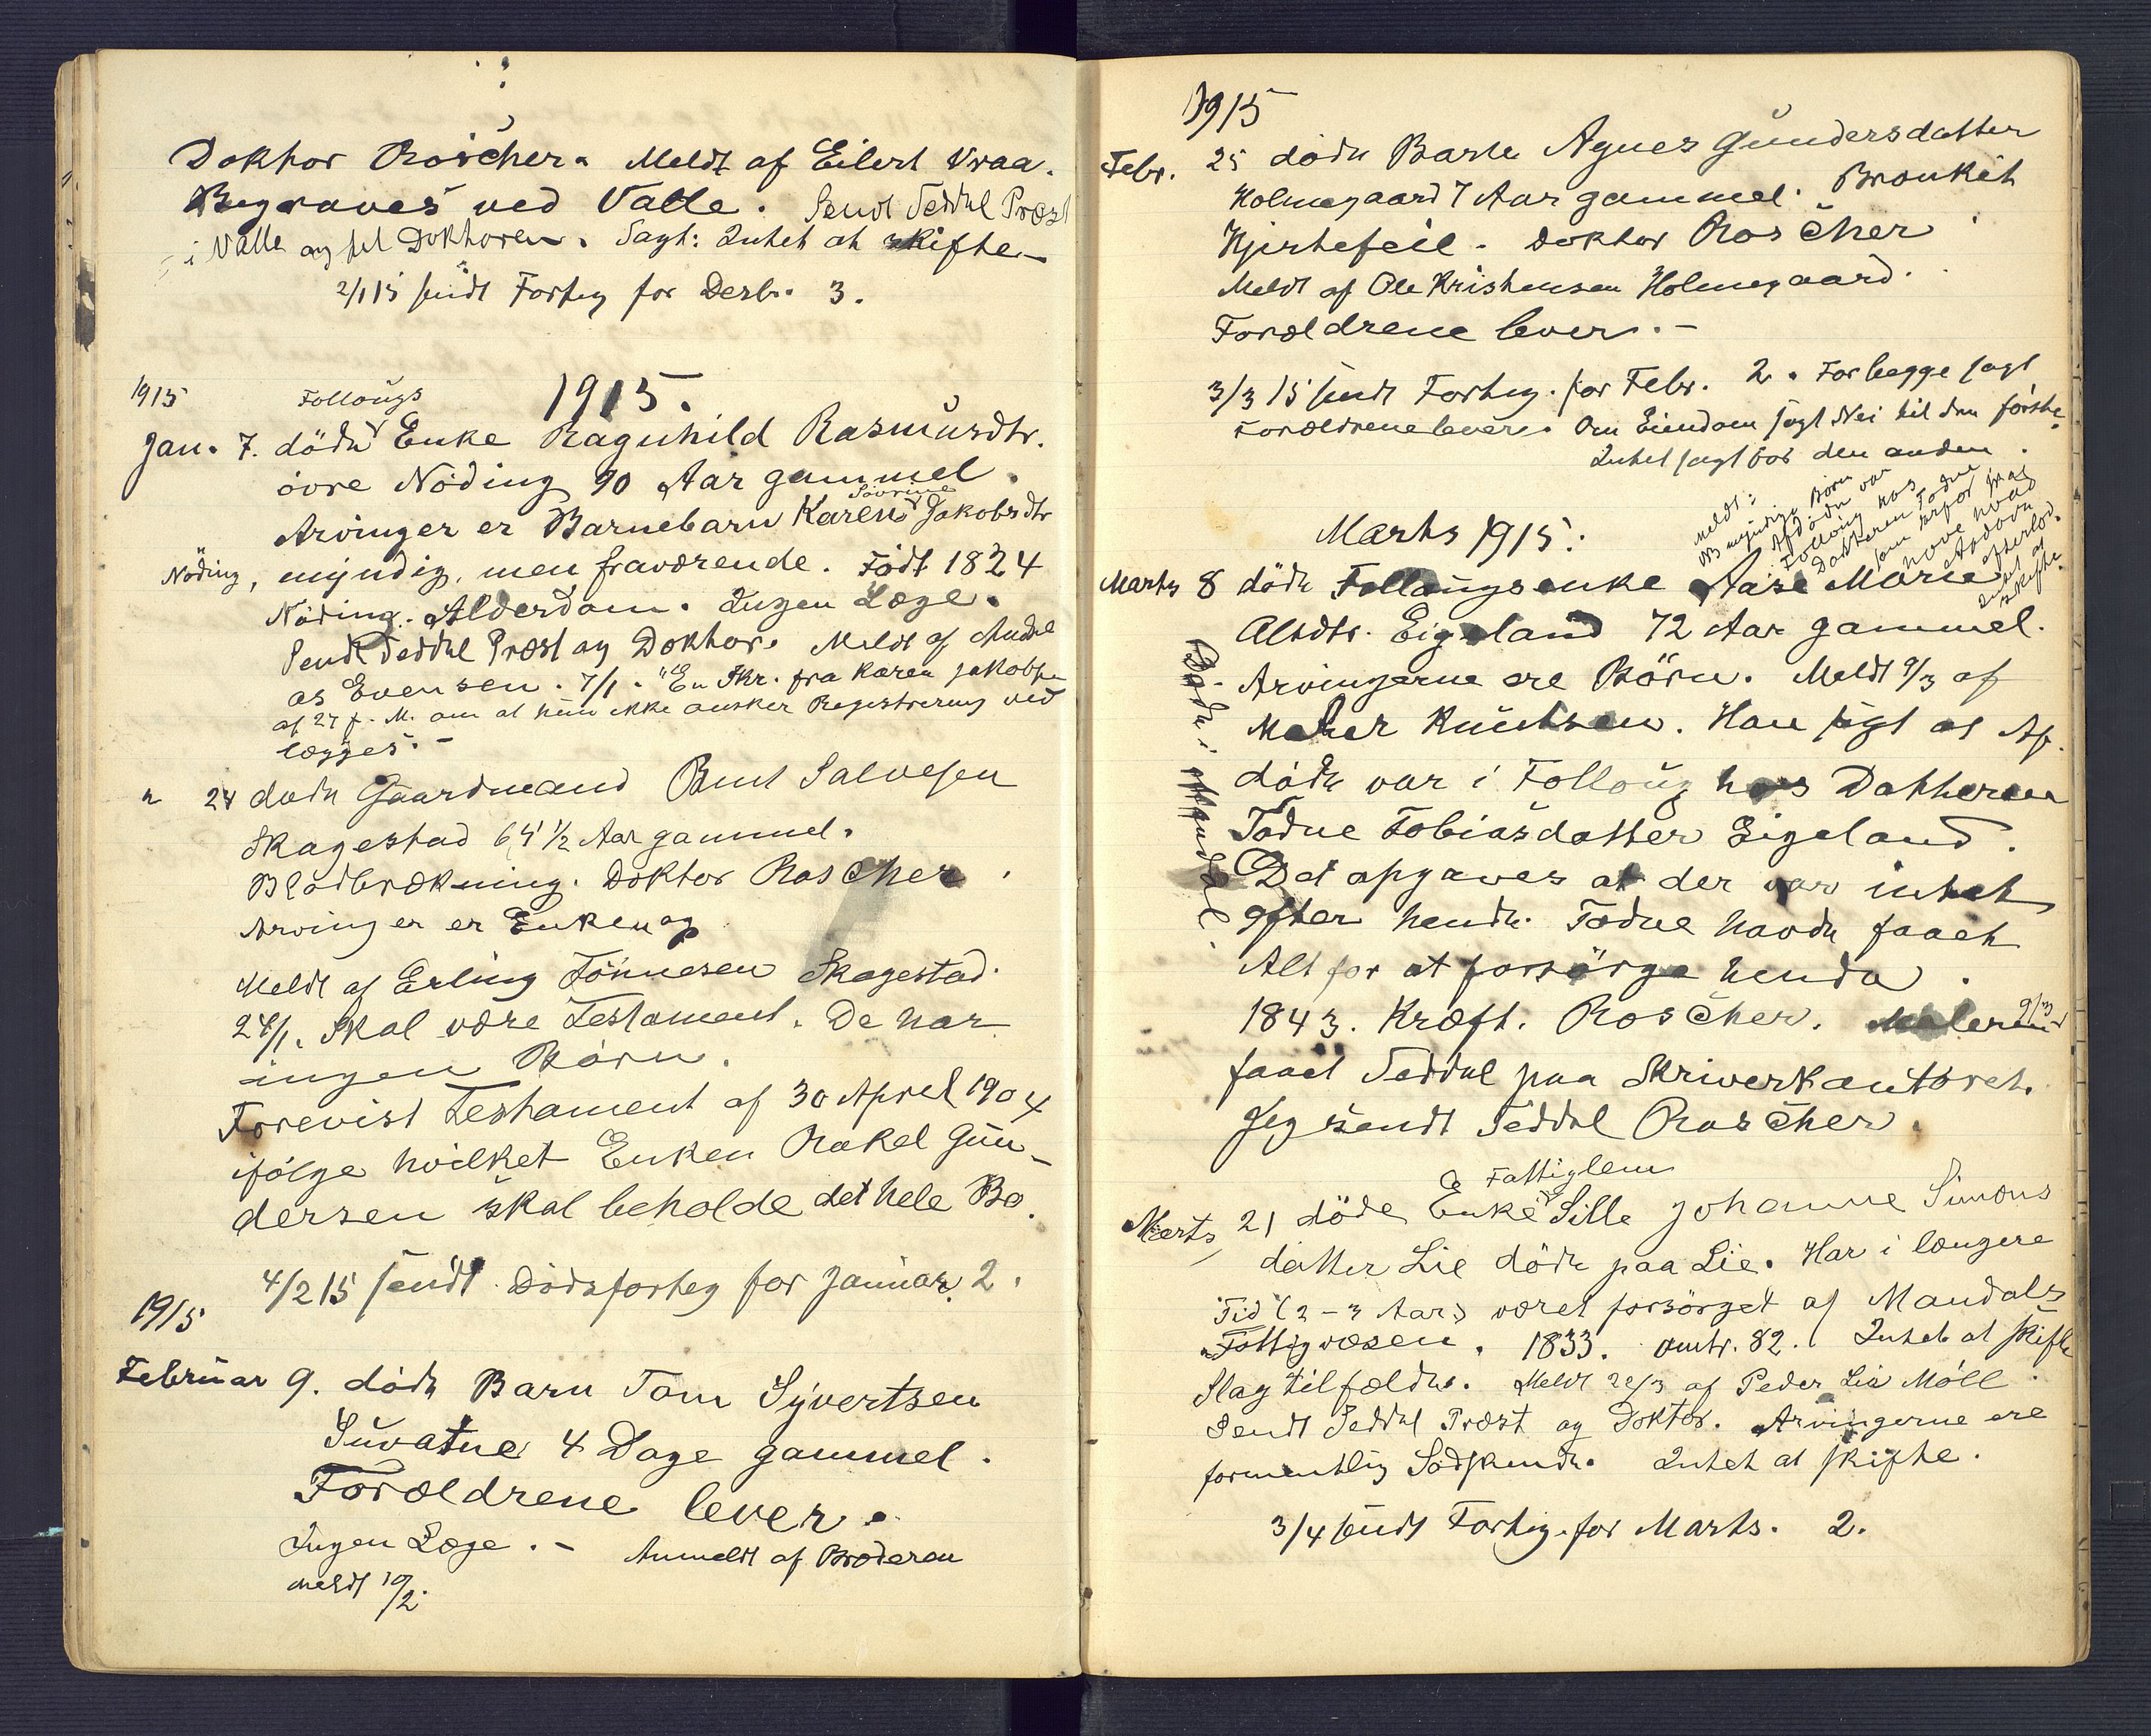 Doktor Roscher. Meldt af Eilert Vraa.
Begraves ved Valle. Sendt Seddel Præst
i Valle og til Doktoren. Sagt: Intet at skifte
2/1 15 sendt Forteg for Desbr. 3.
1915.
1915
Follougs
Jan. 7. døde Enke Ragnhild Rasmusdtr.
øvre Nöding 90 Aar gammel.
Sovrine
Arvinger er Barnebarn Karen Jakobsdtr
Nöding, myndig, men fraværende. Født 1824
Nöding. Alderdom. Ingen Læge.
Sendt Seddel Præst og Doktor. Meldt af
as Evensen. 7/1. "En Skr. fra Karen Jakobsen
af 27 f. M. om at hun ikke ønsker Registrering ved
lægges. -
" 24 døde Gaardmand Bent Salvesen
Skagestad 64 1/2 Aar gammel.
Blodbrækning. Doktor Roscher.
Arvinger er Enken og
Meldt af Erling Tönnesen Skagestad.
24/1. Skal være Testament. De har
ingen Børn.
Forevist Testament af 30 April 1904
ifölge hvilket Enken Rakel Gun-
dersen skal beholde det hele Bo.
4/2 15 sendt Dödsforteg for Januar 2.
1915
Februar 9. døde Barn Tom Syvertsen
Suvatne 4 Dage gammel.
Forældrene lever.
Ingen Læge. - Anmeldt af Broderen
meldt 10/2.
1915
Febr. 25 døde Barn Agnes Gundersdatter
Holmegaard 7 Aar gammel. Bronkit
Hjertefeil. Doktor Roscher
Meldt af Ole Kristensen Holmegaard.
Forældrene lever. -
3/3 15 sendt Forteg. for Febr. 2. For begge sagt
Forældrene lever. Om Eiendom sagt Nei til den første.
Intet sagt for den anden.
Marts 1915:
Meldt:
NB myndige Børn
Afdøde var
Folloug hos
Datteren Todne
som derfor fraa
have hvad
Afdøde
efterlod.
Intet at
skifte.
Marts 8 døde Follougsenke Aase Marie
Alsdtr. Eigeland 72 Aar gammel.
Arvingerne ere Börn. Meldt 9/3 af
Maler Knutsen. Han sagt at Af-
døde var i Folloug hos Datteren
Todne Tobiasdatter Eigeland.
Det opgaves at der var intet
efter hende. Todne havde faaet
Alt for at forsörge hende.
1843. Kræft. Roscher. Maleren 9/3
faaet Seddel paa Skriverkontoret.
Jeg sendt Seddel Roscher.
Døde i Mandal.
og Fattiglem
Marts 21 döde Enke Sille Johanne Simons
datter Lie döde paa Lie. Har i længere
Tid (2-3 Aar) været forsörget af Mandals
Fattigvæsen. 1833. omtr. 82. Intet at skifte
Slagtilfælde. Meldt 22/3 af Peder Lie Möll.
Sendt Seddel Præst og Doktor. Arvingerne ere
formentlig Södskende. Intet at skifte.
3/4 sendt Forteg. for Marts. 2.